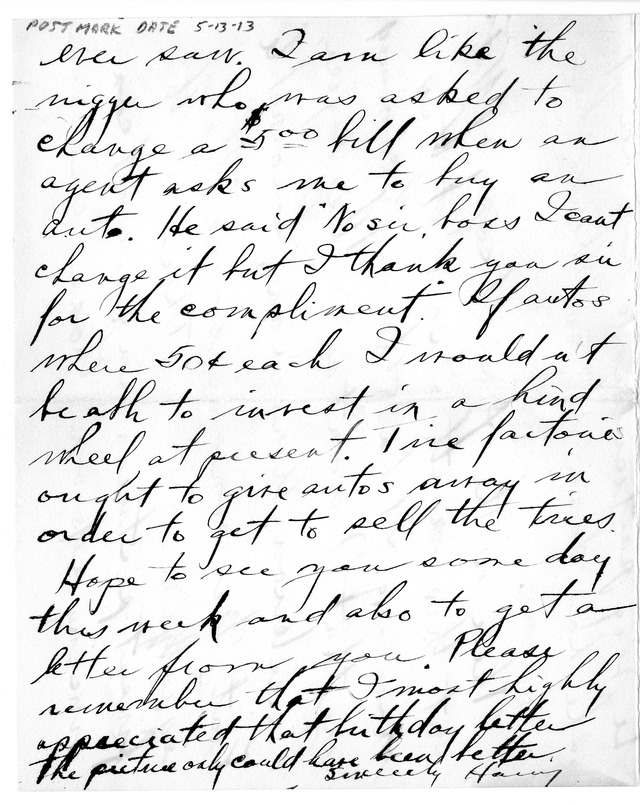 POST MARK DATE 5-13-13
ever saw. I am like the
nigger who was asked to
change a $500 bill when an
agent asks me to buy an
auto. He said "No sir, boss I cant
change it but I thank you sir
for the compliment." If autos
where 50¢ each I wouldn't
be able to invest in a hind
wheel at present. Tire factories
ought to give autos away in
order to get to sell the tires.
Hope to see you some day
this week and also to get a
letter from you. Please
remember that I most highly
appreciated that birthday letter
The picture only could have been better.
Sincerely Harry